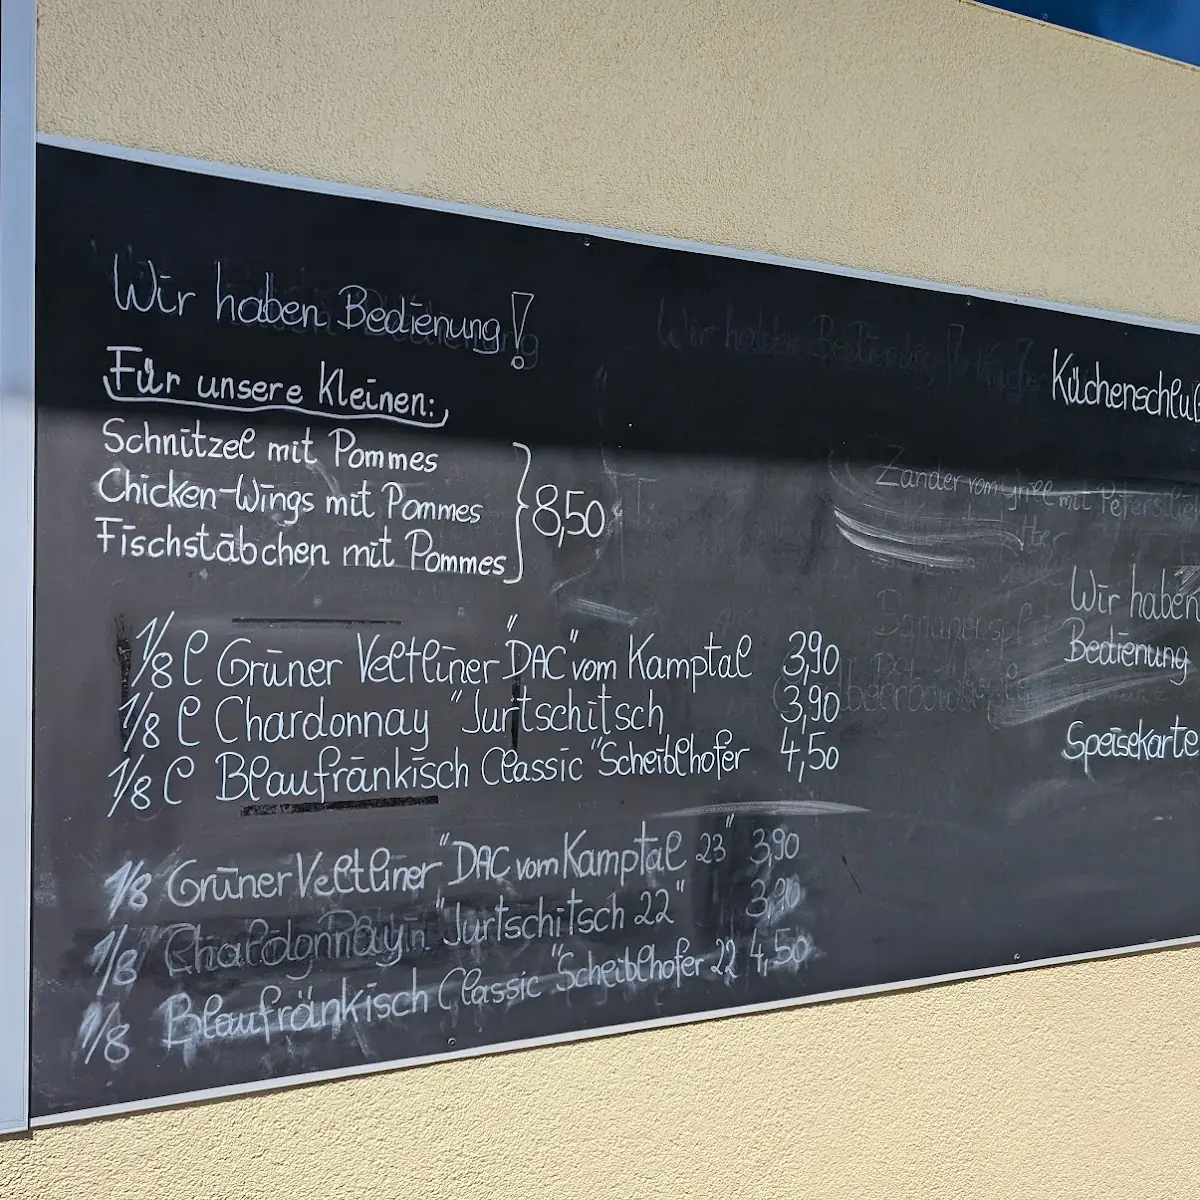 Wir haben Bedienung!
Für unsere Kleinen:
Schnitzel mit Pommes
Chicken-Wings mit Pommes
Fischstäbchen mit Pommes
8,50
1/8 l Grüner Veltliner "DAC" vom Kamptal 3,90
1/8 l Chardonnay "Jurtschitsch 3,90
1/8 l Blaufränkisch Classic "Scheiblhofer 4,50
1/8 Grüner Veltliner "DAC vom Kamptal 23" 3,90
1/8 Chardonnay "Jurtschitsch 22" 3,90
1/8 Blaufränkisch Classic "Scheiblhofer 22 4,50
Wir haben Bedienung!
Küchenschluß
Zander vom Grill mit
Wir haben
Bedienung
Speisekarte